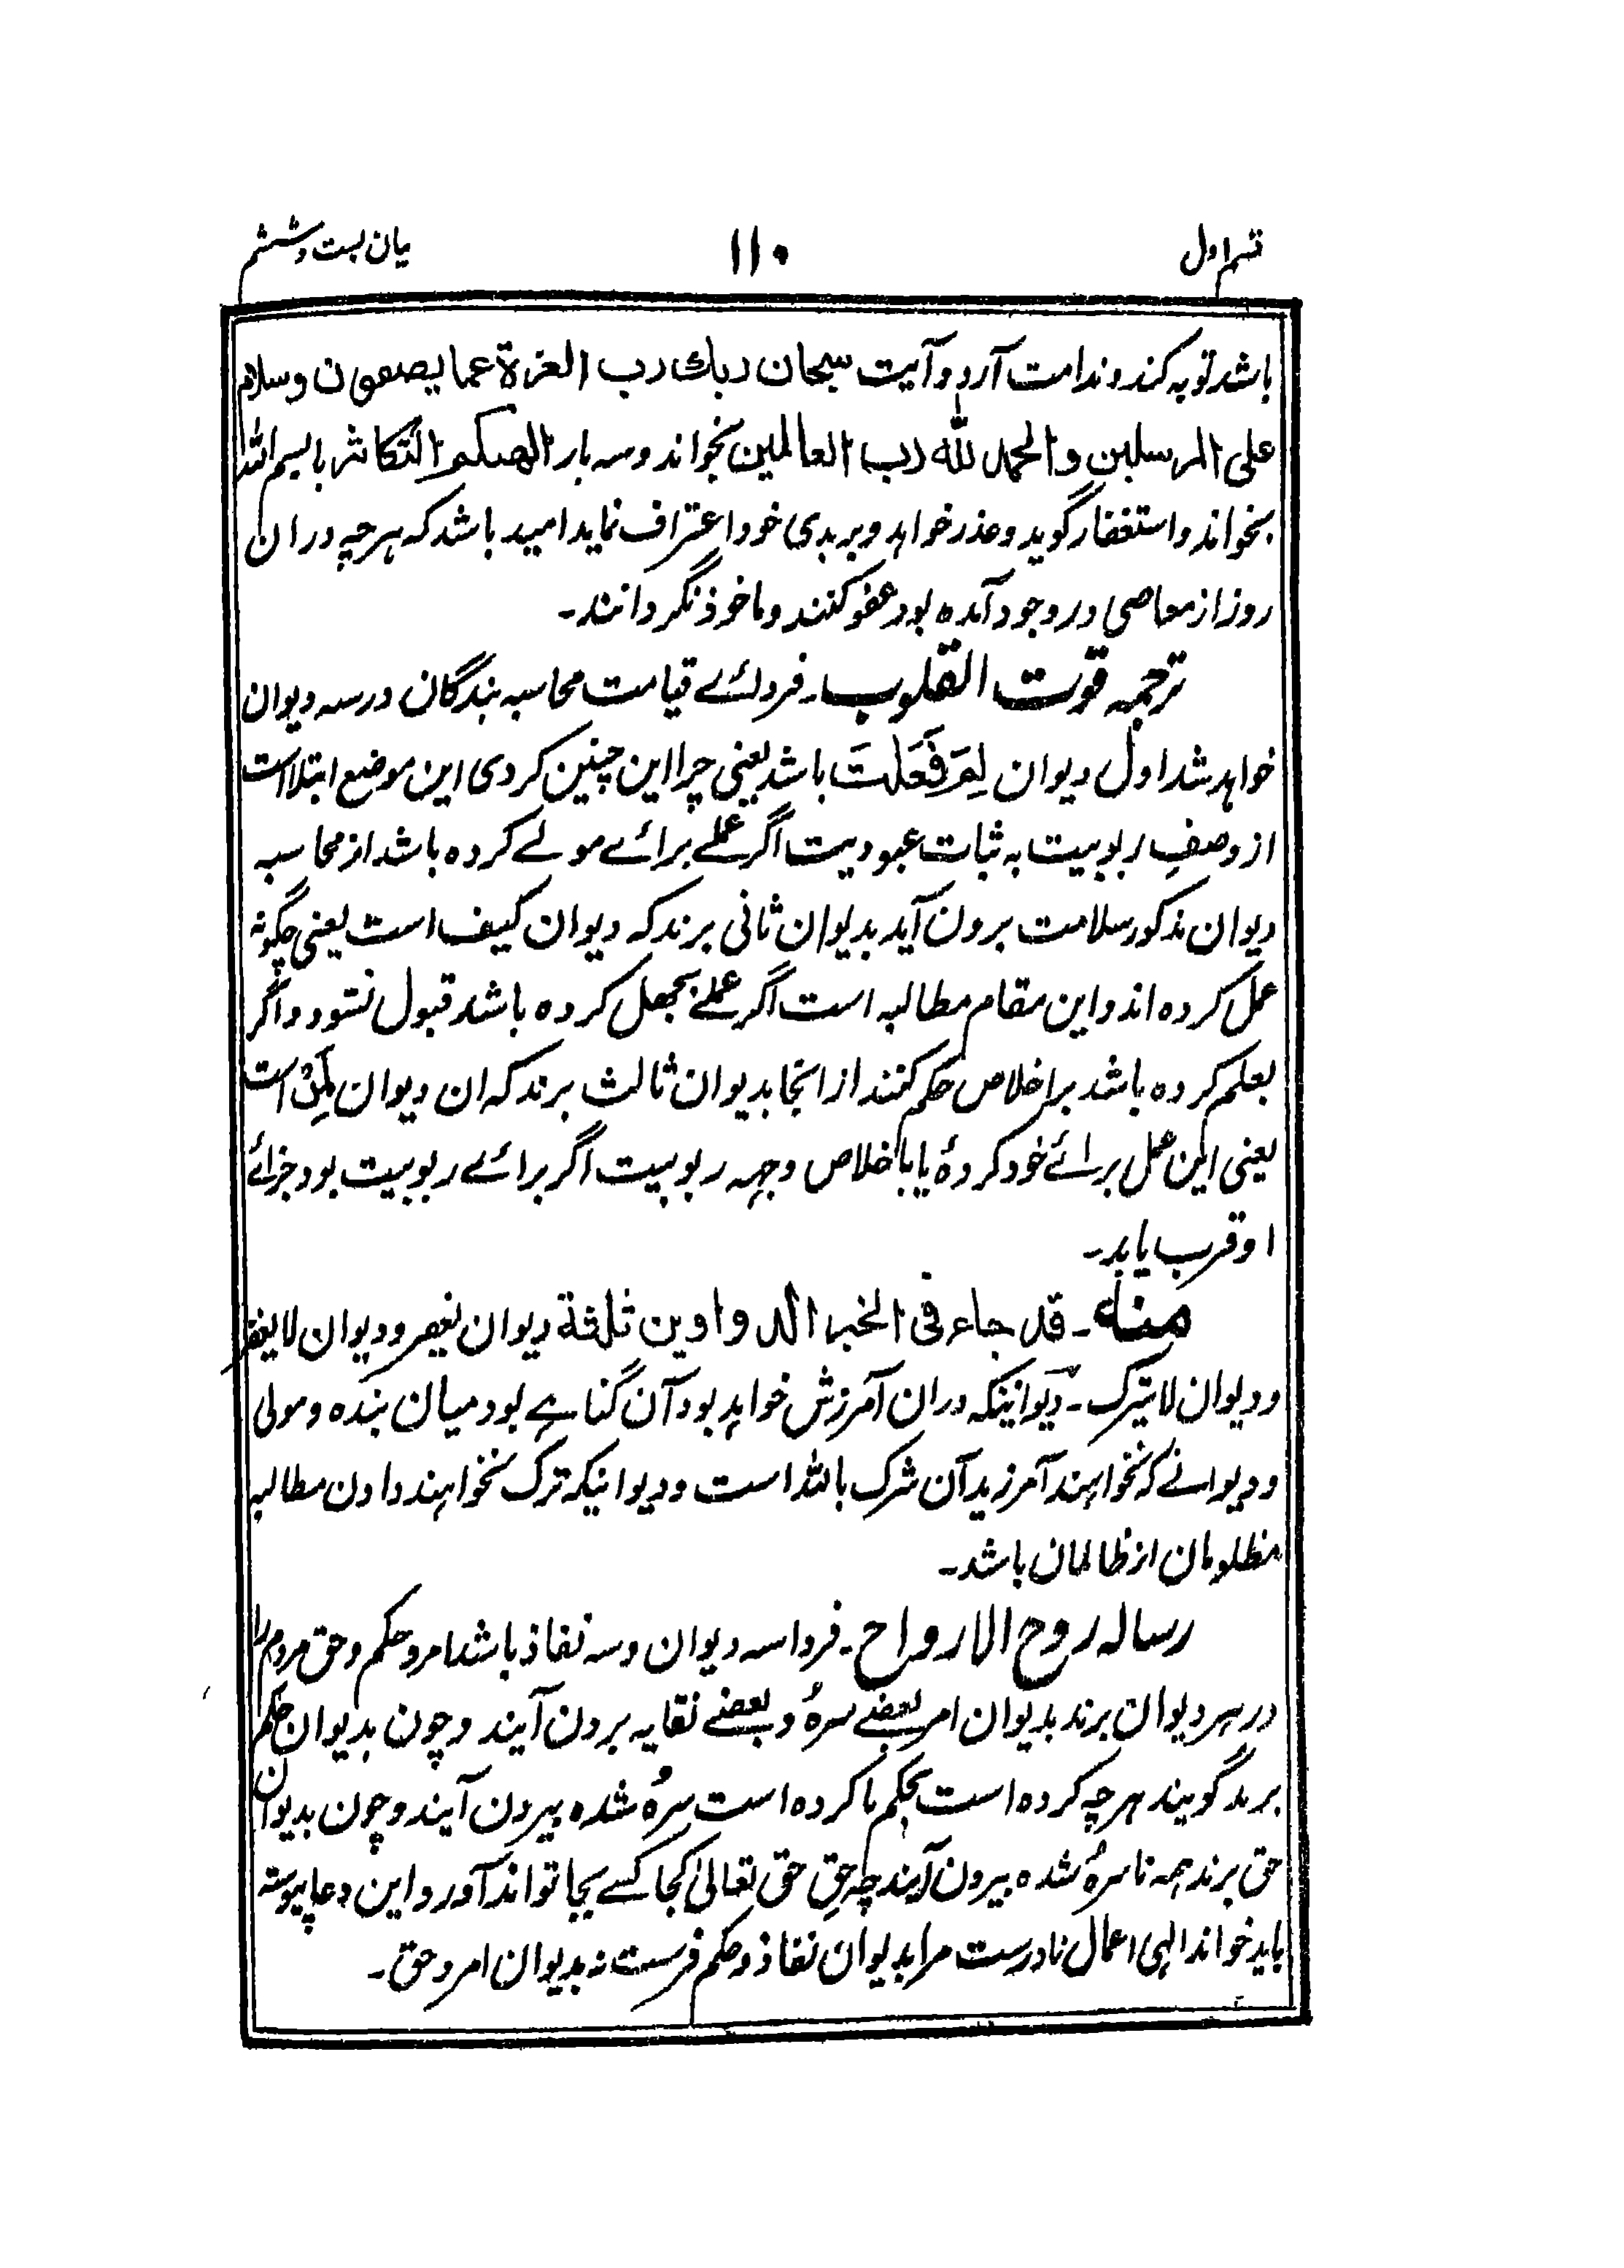 قسم اول ۱۱۰ بیان بست و ششم
باشد توبہ کند و ندامت آرد و آیت سبحان ربك رب العزة عما یصفون وسلام
علی المرسلین والحمد لله رب العالمین بخواند و سہ بار الهىکم التکاثر با بسم اللہ
بخواند و استغفار گوید و عذر خواہد و بر بدی خود اعتراف نماید امید باشد کہ ہرچہ دران
روز از معاصی در وجود آمدہ بود عفو کنند و ماخوذ نگردانند۔
ترجمہ قوت القلوب۔ فردائے قیامت محاسبہ بندگان در سہ دیوان
خواہد شد اول دیوان لِمَ فَعَلتَ باشد یعنی چرا این چنین کردی این موضع ابتلا است
از وصفِ ربوبیت بہ ثبات عبودیت اگر عملے برائے مولے کردہ باشد از محاسبہ
دیوان مذکور سلامت برون آید بدیوان ثانی برند کہ دیوان کیف است یعنی چگونہ
عمل کردہ اند و این مقام مطالبہ است اگر عملے بجهل کردہ باشد قبول نشود و اگر
بعلم کردہ باشد بر اخلاص حکم کنند از انجا بدیوان ثالث برند کہ ان دیوان لِمَنْ است
یعنی این عمل برائے خود کردۂ یا باخلاص وجہہ ربوبیت اگر برائے ربوبیت بود جزائے
او قرب یابد۔
منه۔ قد جاء فی الخبر الدواوین ثلثة دیوان یغفر و دیوان لا یغفر
و دیوان لا یترک۔ دیوانیکہ دران آمرزش خواہد بود آن گناہے بود میان بندہ و مولی
و دیوانے کہ نخواہند آمرزید آن شرک باللہ است و دیوانیکہ ترک نخواہند دادن مطالبہ
مظلومان از ظالمان باشد۔
رسالہ روح الارواح۔ فردا سہ دیوان و سہ نفاذ باشد امر و حکم و حق مردم را
در ہر دیوان برند بدیوان امر بعضے سرہُ و بعضے نقایہ برون آیند و چون بدیوان حکم
برند گویند ہرچہ کردہ است بحکم ما کردہ است سرہُ شدہ بیرون آیند و چون بدیوان
حق برند ہمہ ناسرہُ شدہ بیرون آیند چہ حقِ حق تعالیٰ کجا کسے بجا تواند آورد و این دعا پیوستہ
باید خواند الہی اعمال نادرست مرا بدیوان نفاذ و حکم فرست نہ بدیوان امر و حق۔